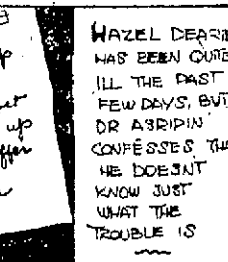 p
et
up
ffer
HAZEL DEARIE
HAS BEEN QUITE
ILL THE PAST
FEW DAYS, BUT
DR ASRIPIN
CONFESSES THA
HE DOESNT
KNOW JUST
WHAT THE
TROUBLE IS